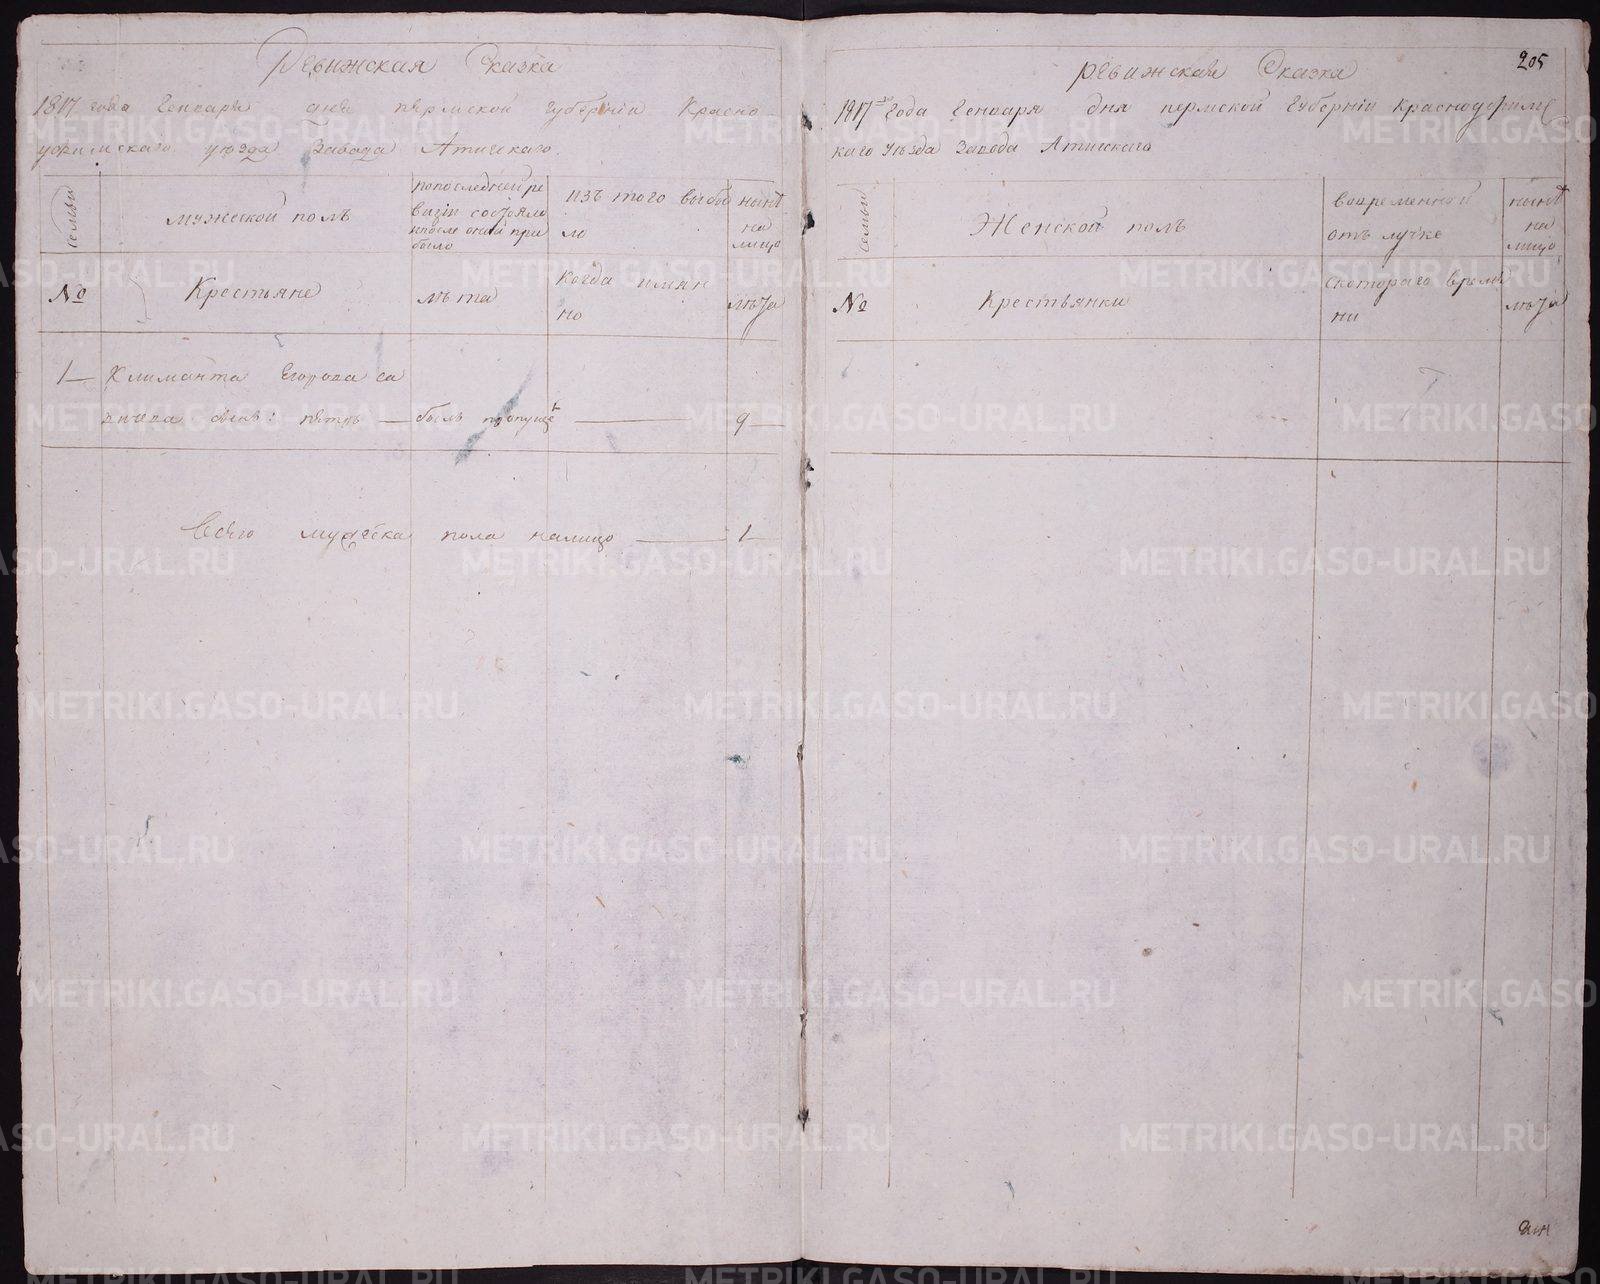 Ревижская Сказка
1817 года Генваря дня пермской губерніи Красно
уфимскаго уѣзда Завода Атигскаго
семьи
мужеской полъ
попоследней ре
визіи состояло
ипосле оной при
было
изъ того выбы
ло
нынѣ
на
лицо
№
Крестьяне
лѣта
Когда имян
но
лѣта
1 Климонта Егорова са
сынъ: пётръ был пропущ 9
Всего мужеска пола налицо 1
205
ревижская Сказка
1817 года Генваря дня пермской Губерніи Красноуфимс
каго Уѣзда Завода Атигскаго
семьи
Женской полъ
вовременной
отъ лучке
нынѣ
на
лицо
№
Крестьянки
скотораго време
ни
лѣта
METRIKI.GASO-URAL.RU